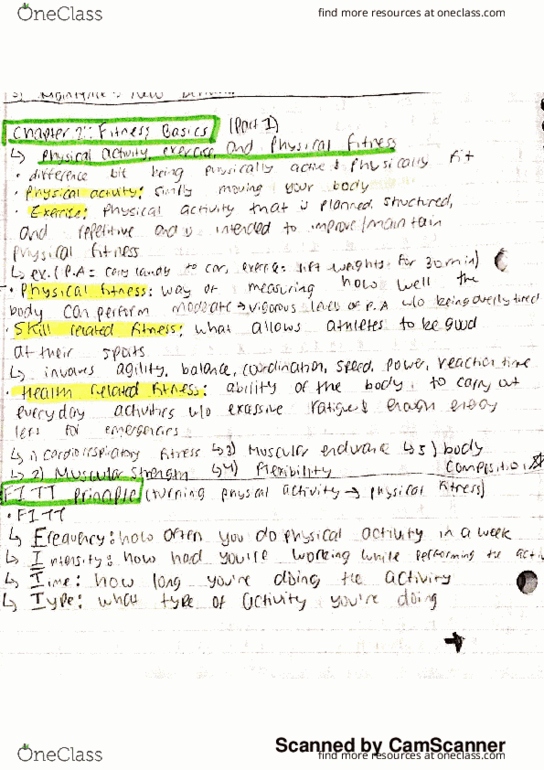 OneClass
find more resources at oneclass.com
Chapter 2: Fitness Basics (Part 1)
↳ Physical activity, exercise, and Physical Fitness
• difference b/t being physically active & physically fit
• Physical activity: simply moving your body
• Exercise: Physical activity that is planned, structured,
and repetitive and is intended to improve/maintain
physical fitness
↳ ex. (P.A = carry laundry to car, exercise = lift weights for 30 min)
• Physical fitness: way of measuring how well the
body can perform moderate → vigorous levels of P.A w/o being overly tired
• Skill related fitness: what allows athletes to be good
at their sports
↳ involves agility, balance, coordination, speed, power, reaction time
• Health related fitness: ability of the body to carry out
everyday activities w/o excessive fatigue & enough energy
left for emergencies
↳ 1) cardiorespiratory fitness ↳ 3) Muscular endurance ↳ 5) body
↳ 2) Muscular Strength ↳ 4) flexibility composition
FITT Principle (turning physical activity → physical fitness)
• FITT
↳ Frequency: how often you do physical activity in a week
↳ Intensity: how had you're working while performing the
↳ Time: how long you're doing the activity
↳ Type: what type of activity you're doing
Scanned by CamScanner
OneClass
find more resources at oneclass.com